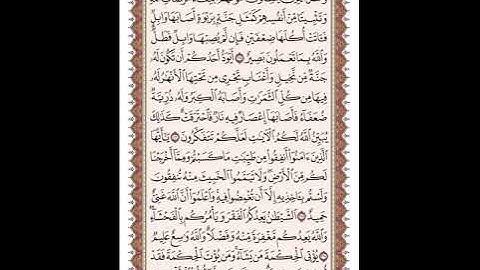 وَتَثْبِيتًا مِّنْ أَنفُسِهِمْ كَمَثَلِ جَنَّةٍ بِرَبْوَةٍ أَصَابَهَا وَابِلٌ
فَـَٔاتَتْ أُكُلَهَا ضِعْفَيْنِ فَإِن لَّمْ يُصِبْهَا وَابِلٌ فَطَلٌّ
وَٱللَّهُ بِمَا تَعْمَلُونَ بَصِيرٌ أَيَوَدُّ أَحَدُكُمْ أَن تَكُونَ لَهُۥ
جَنَّةٌ مِّن نَّخِيلٍ وَأَعْنَابٍ تَجْرِى مِن تَحْتِهَا ٱلْأَنْهَٰرُ لَهُۥ
فِيهَا مِن كُلِّ ٱلثَّمَرَٰتِ وَأَصَابَهُ ٱلْكِبَرُ وَلَهُۥ ذُرِّيَّةٌ
ضُعَفَآءُ فَأَصَابَهَآ إِعْصَارٌ فِيهِ نَارٌ فَٱحْتَرَقَتْ كَذَٰلِكَ
يُبَيِّنُ ٱللَّهُ لَكُمُ ٱلْـَٔايَٰتِ لَعَلَّكُمْ تَتَفَكَّرُونَ يَٰٓأَيُّهَا
ٱلَّذِينَ ءَامَنُوٓا۟ أَنفِقُوا۟ مِن طَيِّبَٰتِ مَا كَسَبْتُمْ وَمِمَّآ أَخْرَجْنَا
لَكُم مِّنَ ٱلْأَرْضِ وَلَا تَيَمَّمُوا۟ ٱلْخَبِيثَ مِنْهُ تُنفِقُونَ
وَلَسْتُم بِـَٔاخِذِيهِ إِلَّآ أَن تُغْمِضُوا۟ فِيهِ وَٱعْلَمُوٓا۟ أَنَّ ٱللَّهَ غَنِىٌّ
حَمِيدٌ ٱلشَّيْطَٰنُ يَعِدُكُمُ ٱلْفَقْرَ وَيَأْمُرُكُم بِٱلْفَحْشَآءِ
وَٱللَّهُ يَعِدُكُم مَّغْفِرَةً مِّنْهُ وَفَضْلًا وَٱللَّهُ وَٰسِعٌ عَلِيمٌ
يُؤْتِى ٱلْحِكْمَةَ مَن يَشَآءُ وَمَن يُؤْتَ ٱلْحِكْمَةَ فَقَدْ